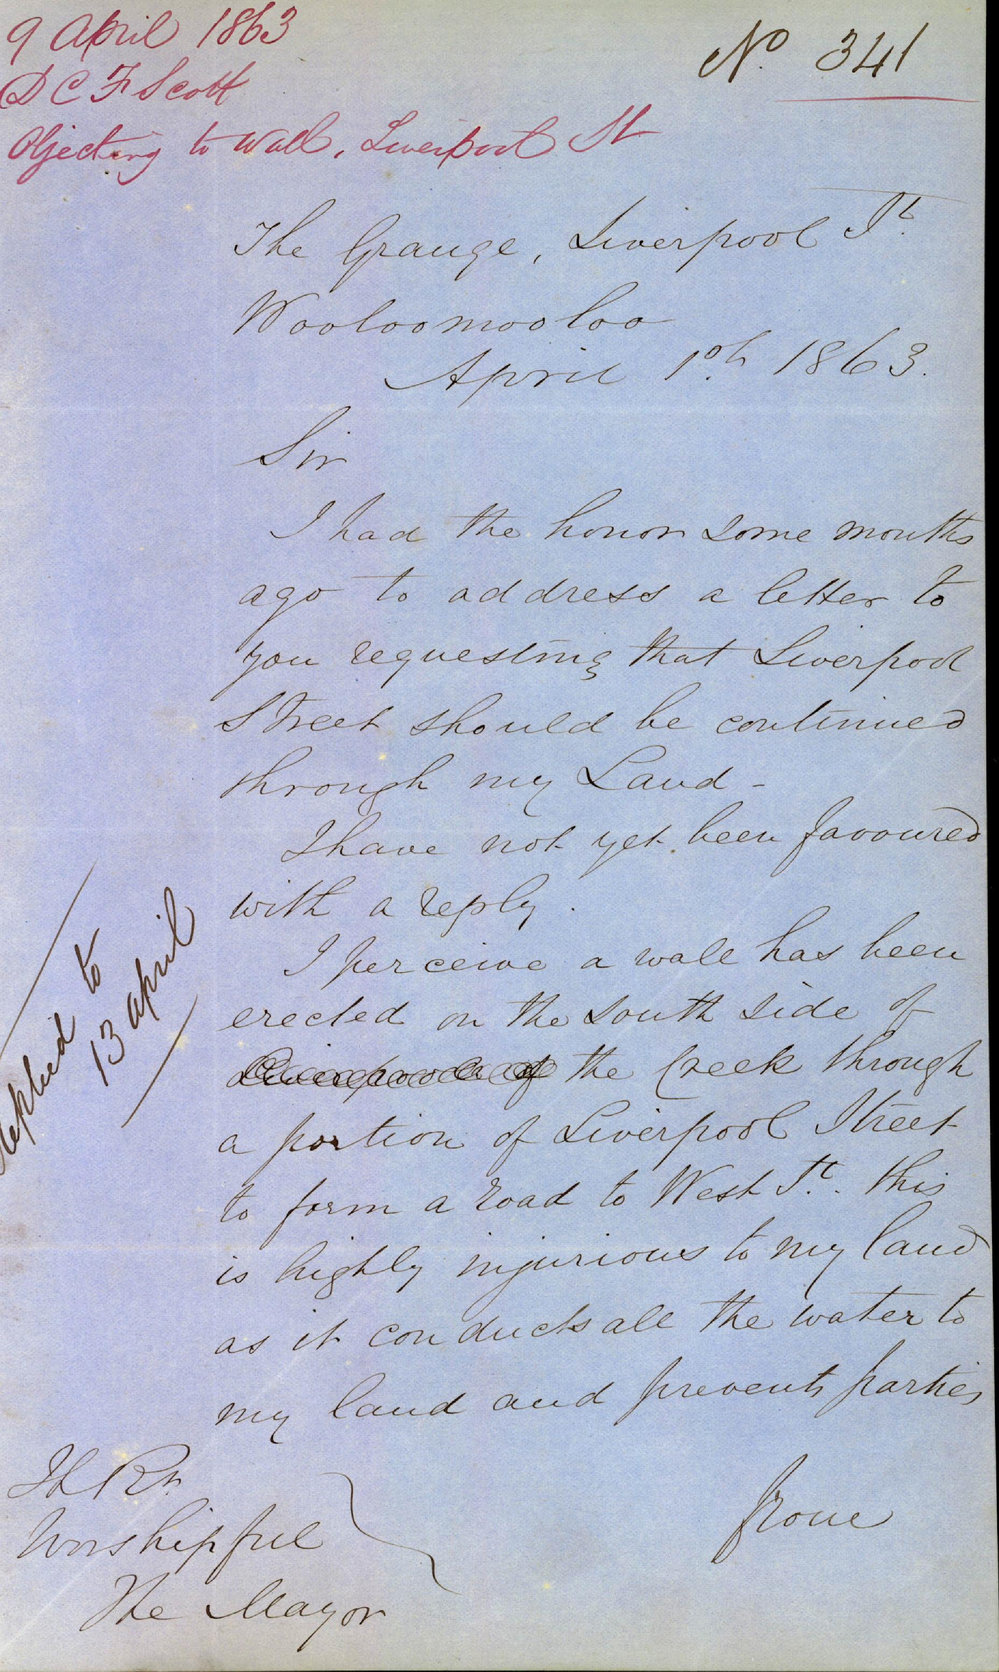 9 April 1863
D C F Scott
Objecting to Wall, Liverpool St
No. 341
The Grange, Liverpool St.
Wooloomooloo
April 10th 1863.
Sir
I had the honor some months
ago to address a letter to
you requesting that Liverpool
Street should be continued
through my Land -
I have not yet been favoured
with a reply.
I perceive a wall has been
erected on the south side of
the Creek through
a portion of Liverpool Street
to form a road to West St. this
is highly injurious to my land
as it conducts all the water to
my land and prevents parties
from
The Rt.
Worshipful
The Mayor
Replied to
13 April